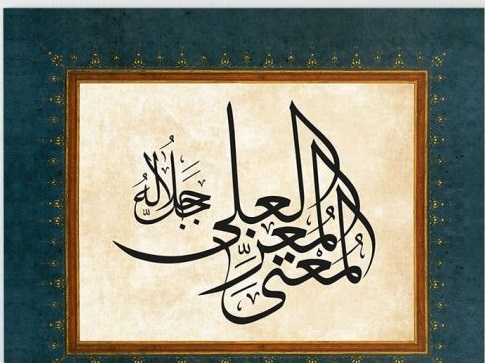 العلى
المعز
المغنى
جل جلاله